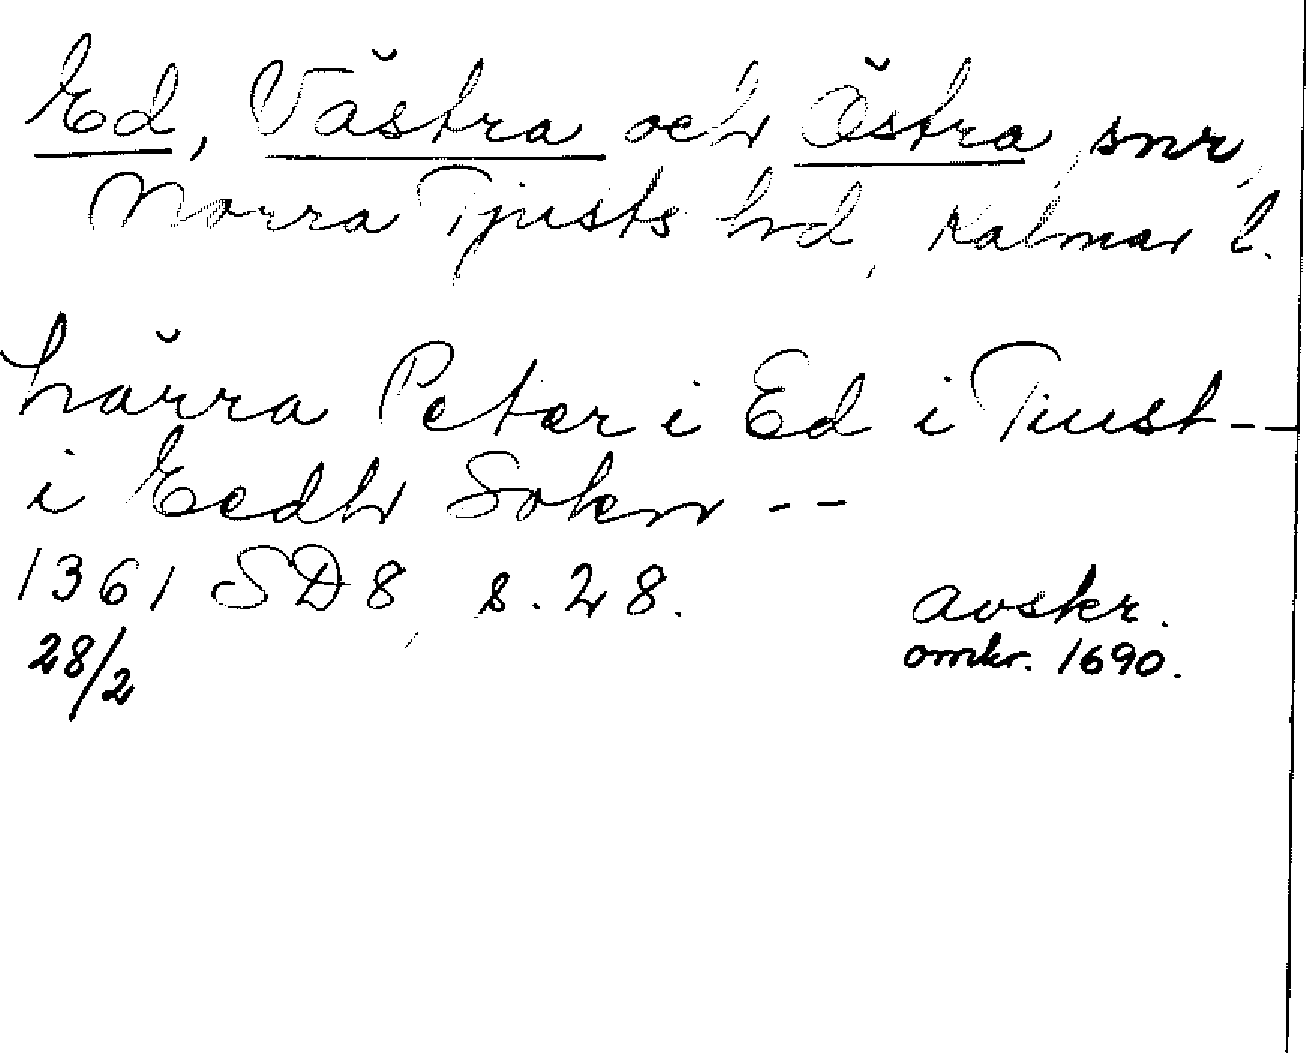 Ed, Västra och Östra snr,
Norra Tjusts hrd, Kalmar l.
härra Peter i Ed i Tiust --
i Eedh Sokn --
1361 SD 8, s. 28.
28/2
avskr.
omkr. 1690.